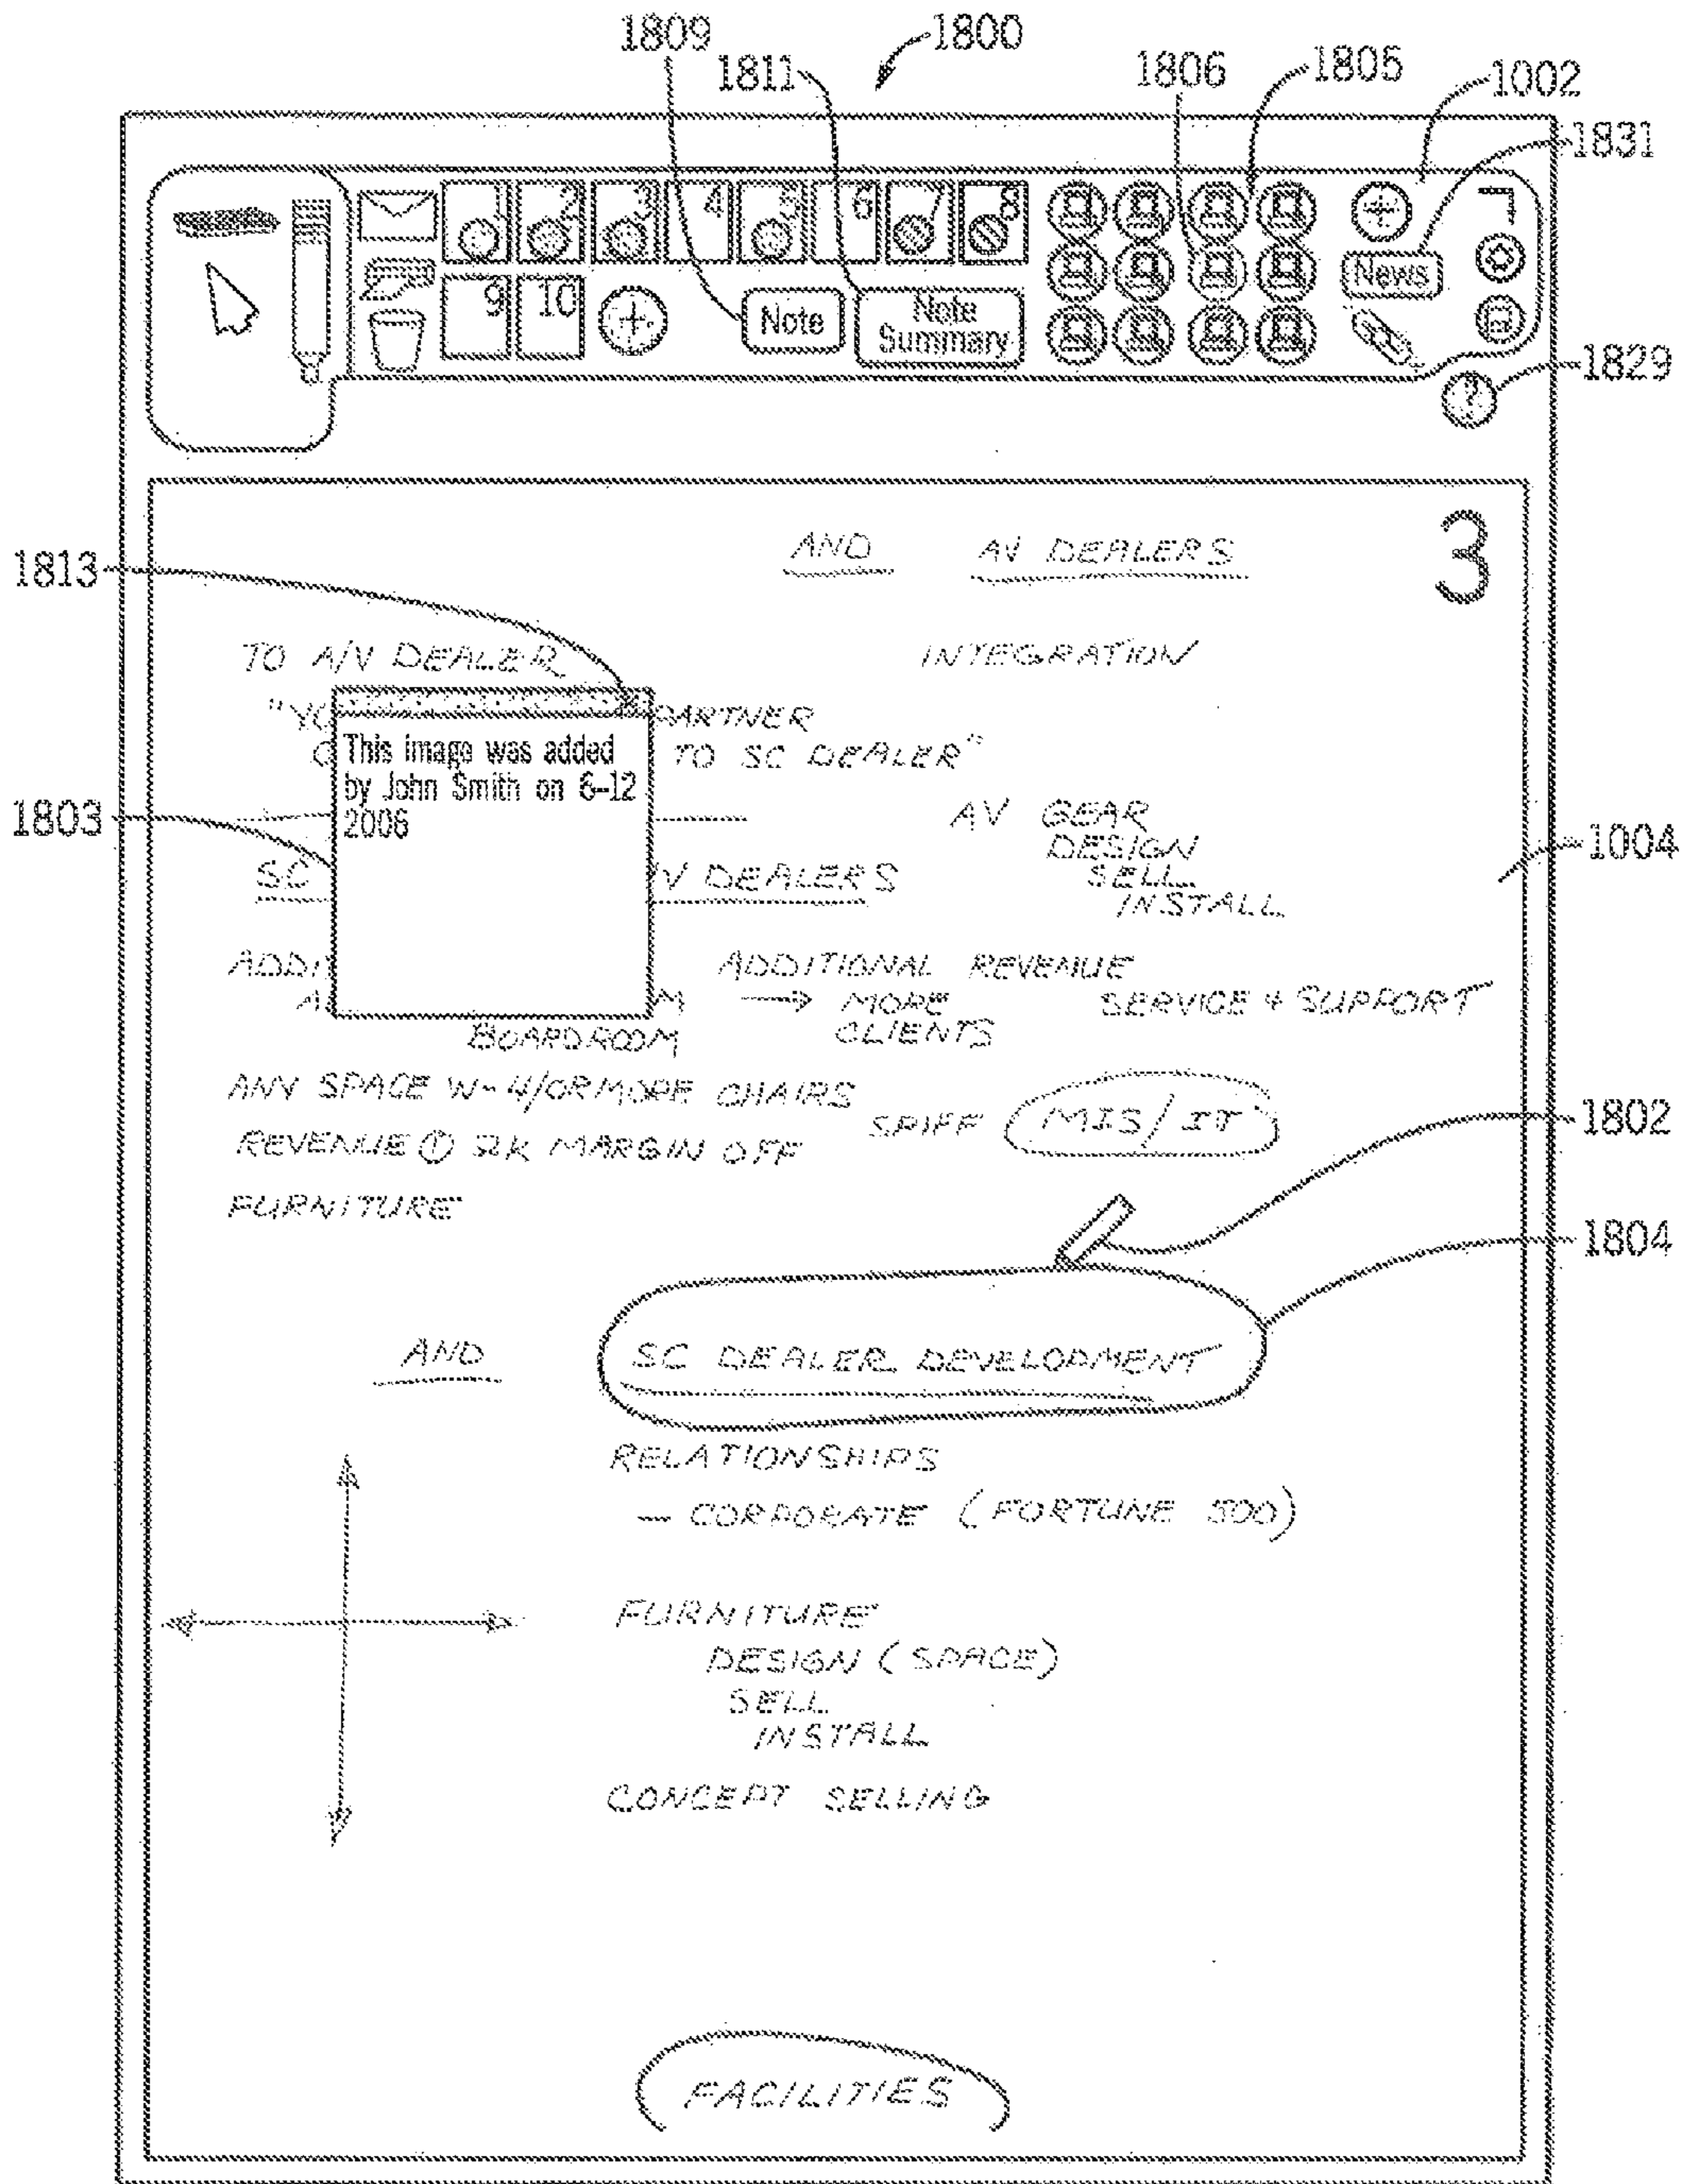 1809
1800
1811
1806
1805
1002
1831
1 2 3 4 5 6 7 8
9 10
Note
Note
Summary
News
?
1829
3
AND AV DEALERS
1813
TO A/V DEALER
INTEGRATION
"YO PARTNER
TO SC DEALER"
This image was added
by John Smith on 6-12
2006
1803
AV GEAR
DESIGN
SELL
INSTALL
1004
SC V DEALERS
ADDI ADDITIONAL REVENUE
A M → MORE
CLIENTS
SERVICE & SUPPORT
BOARDROOM
ANY SPACE W- 4/OR MORE CHAIRS
SPIFF MIS/IT
1802
REVENUE MARGIN OFF
FURNITURE
1804
AND SC DEALER DEVELOPMENT
RELATIONSHIPS
— CORPORATE (FORTUNE 500)
FURNITURE
DESIGN (SPACE)
SELL
INSTALL
CONCEPT SELLING
FACILITIES